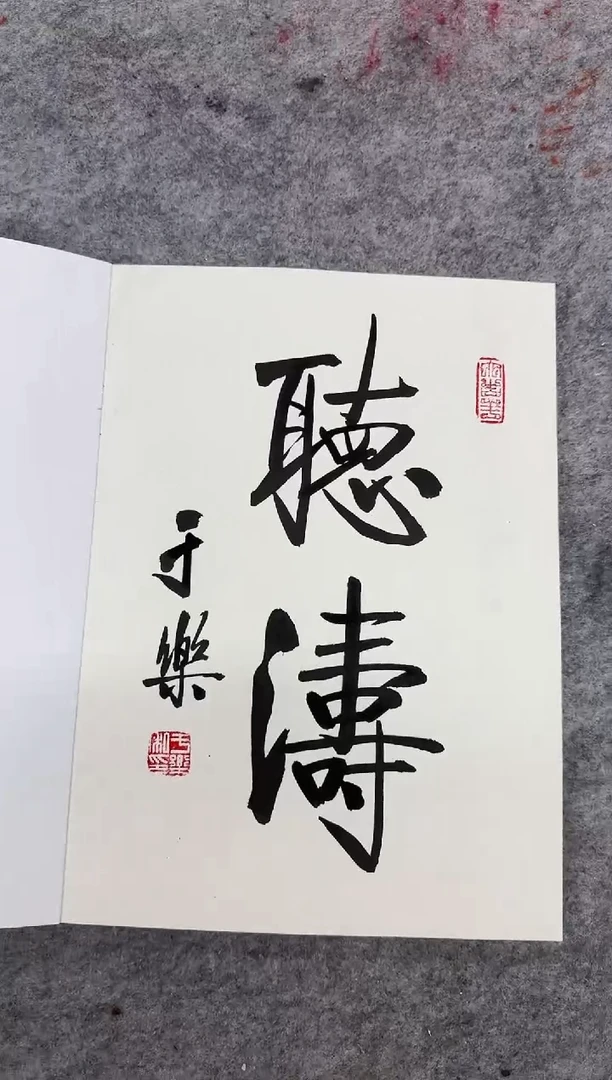 聽濤
于樂